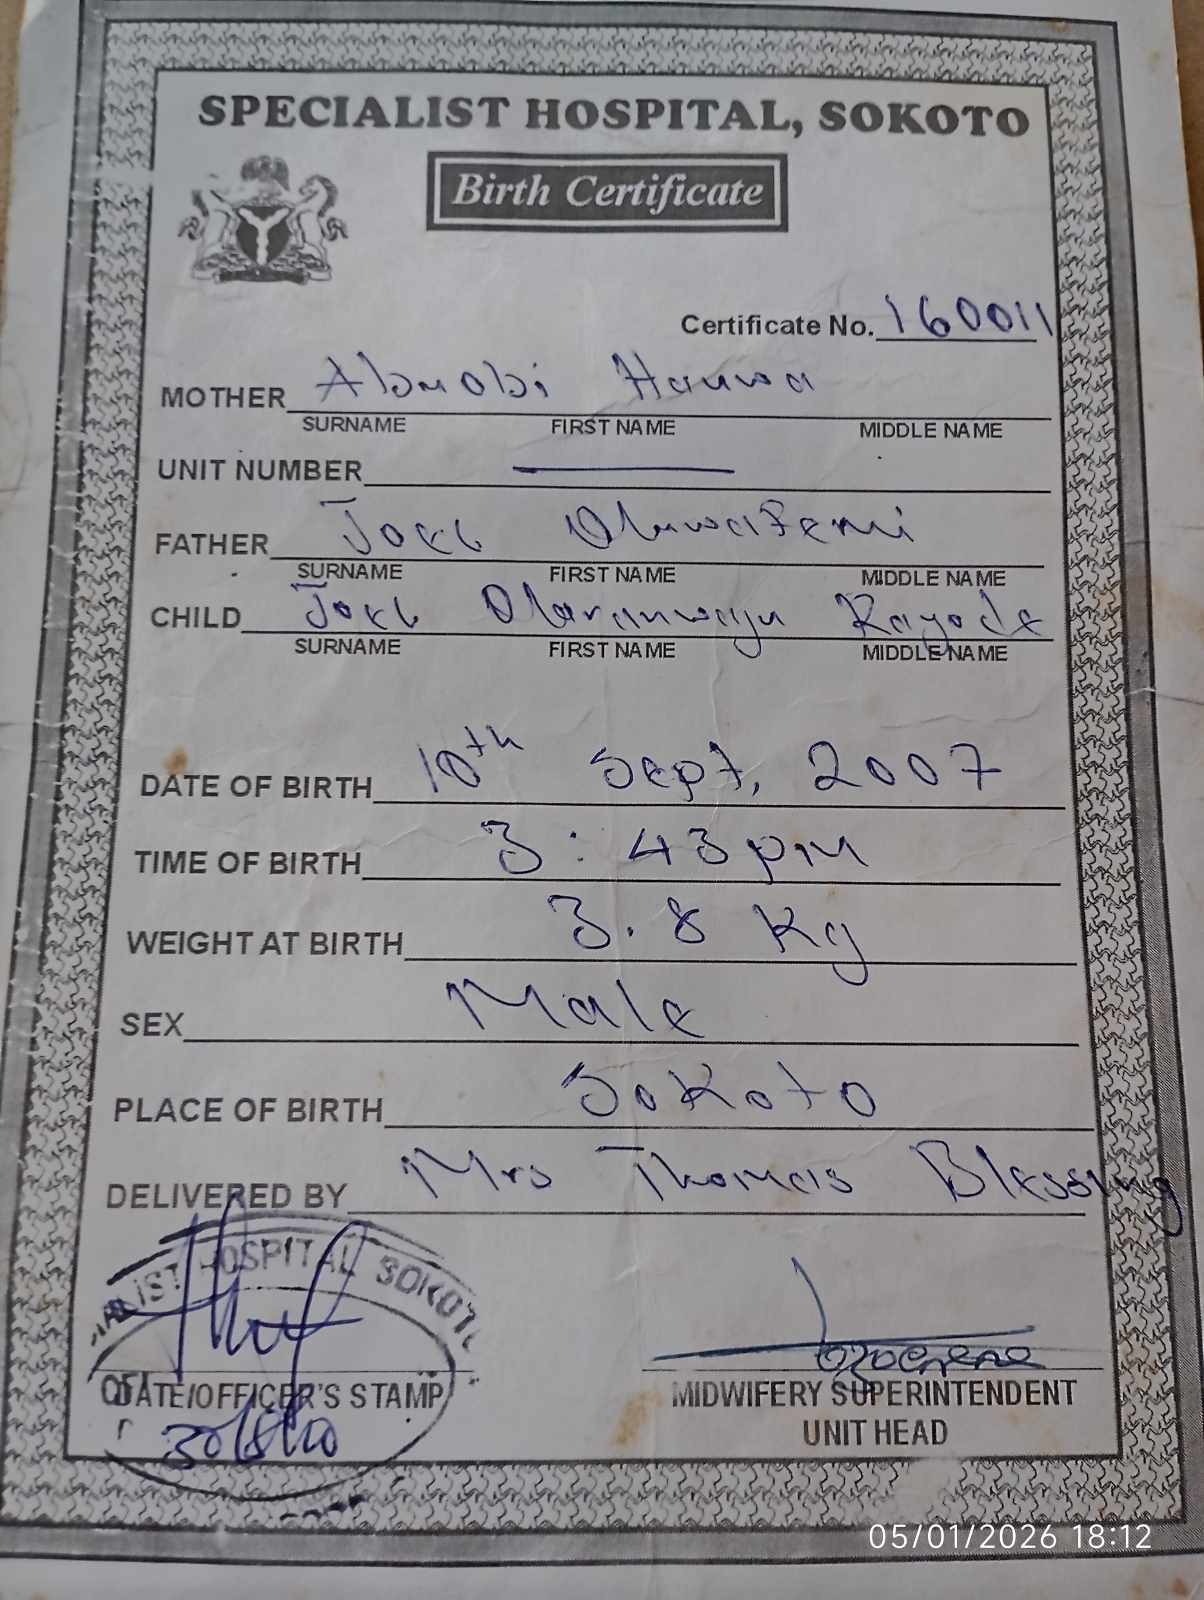 SPECIALIST HOSPITAL, SOKOTO
Birth Certificate
Certificate No. 160011
MOTHER Abmobi Hauwa
SURNAME FIRST NAME MIDDLE NAME
UNIT NUMBER
FATHER Joel Oluwafemi
SURNAME FIRST NAME MIDDLE NAME
CHILD Joel Olaranwaju Kayode
SURNAME FIRST NAME MIDDLE NAME
DATE OF BIRTH 10th Sept, 2007
TIME OF BIRTH 3:43pm
WEIGHT AT BIRTH 3.8 Kg
SEX Male
PLACE OF BIRTH Sokoto
DELIVERED BY Mrs Thomas Blessing
HOSPITAL SOKOTO
DATE/OFFICER'S STAMP
MIDWIFERY SUPERINTENDENT
UNIT HEAD
05/01/2026 18:12